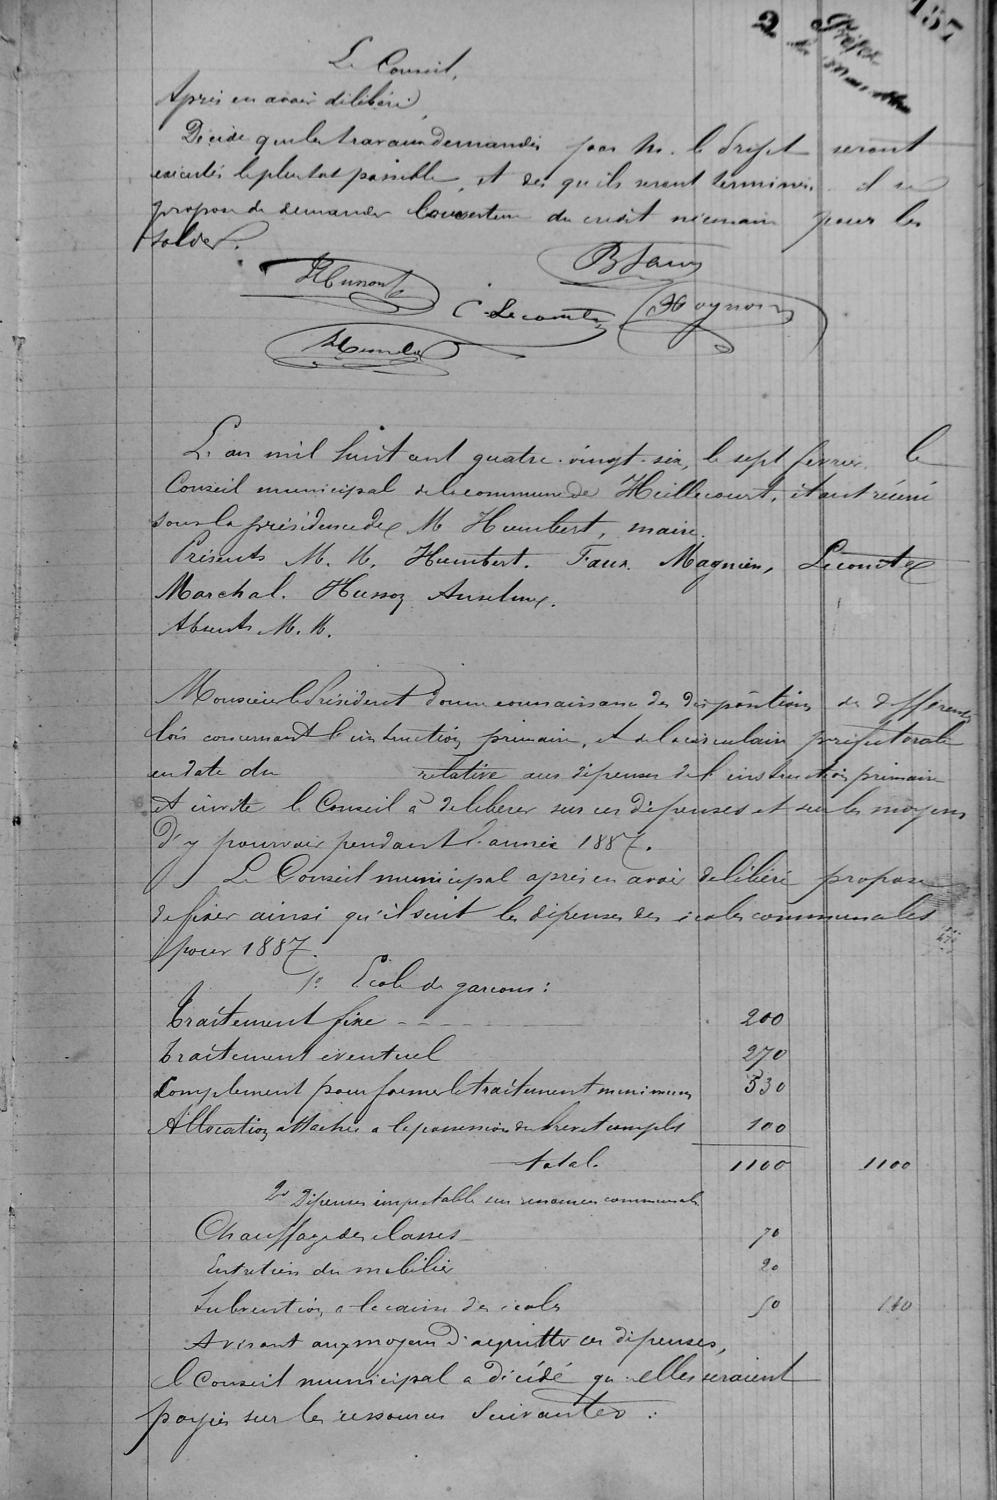 157
2
Le Conseil,
Après en avoir délibéré,
Décide que les travaux demandés par M. le Préfet seront
exécutés le plus tot possible, et dès qu'ils seront terminés il se
propose de demander l'ouverture du crédit nécessaire pour les
solder.
Husson B Faux
C Lecomte Magnien
Humbert
L'an mil huit cent quatre-vingt-six, le sept février le
Conseil municipal de la commune de Heillecourt, étant réuni
sous la présidence de M Humbert, maire.
Présents M. M. Humbert. Faux. Magnien, Lecomte
Marchal. Husson Anselme.
Absents M. M.
Monsieur le Président donne connaissance des dispositions de differentes
lois concernant l'instruction primaire, et de la circulaire préfectorale
en date du relative aux dépenses de l'instruction primaire
et invite le Conseil à délibérer sur ces dépenses et sur les moyens
d'y pourvoir pendant l'année 1887.
Le Conseil municipal après en avoir délibéré propose
de fixer ainsi qu'il suit les dépenses des écoles communales
pour 1887.
1° Ecole de garçons:
Traitement fixe - - - - 200
Traitement éventuel 270
Complement pour former le traitement minimum 530
Allocation attachée a la possession du brevet complet 100
total. 1100 1100
2° Dépenses imputable sur ressources communale
Chauffage des classes 70
Entretien du mobilier 20
Subvention a la caisse des écoles 50 140
Avisant aux moyens d'acquitter ces dépenses,
le Conseil municipal a décidé qu'elles seraient
payées sur les ressources suivantes :